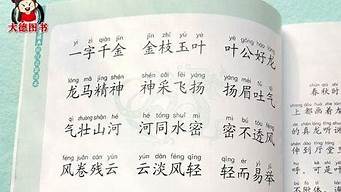 大德图书
yī zì qiān jīn jīn zhī yù yè yè gōng hào lóng
一字千金 金枝玉叶 叶公好龙
lóng mǎ jīng shén shén cǎi fēi yáng yáng méi tǔ qì
龙马精神 神采飞扬 扬眉吐气
qì zhuàng shān hé hé tóng shuǐ mì mì bù tòu fēng
气壮山河 河同水密 密不透风
fēng juǎn cán yún yún dàn fēng qīng qīng ér yì jǔ
风卷残云 云淡风轻 轻而易举
春秋时
上都画着
的真龙听说
伸到厅堂